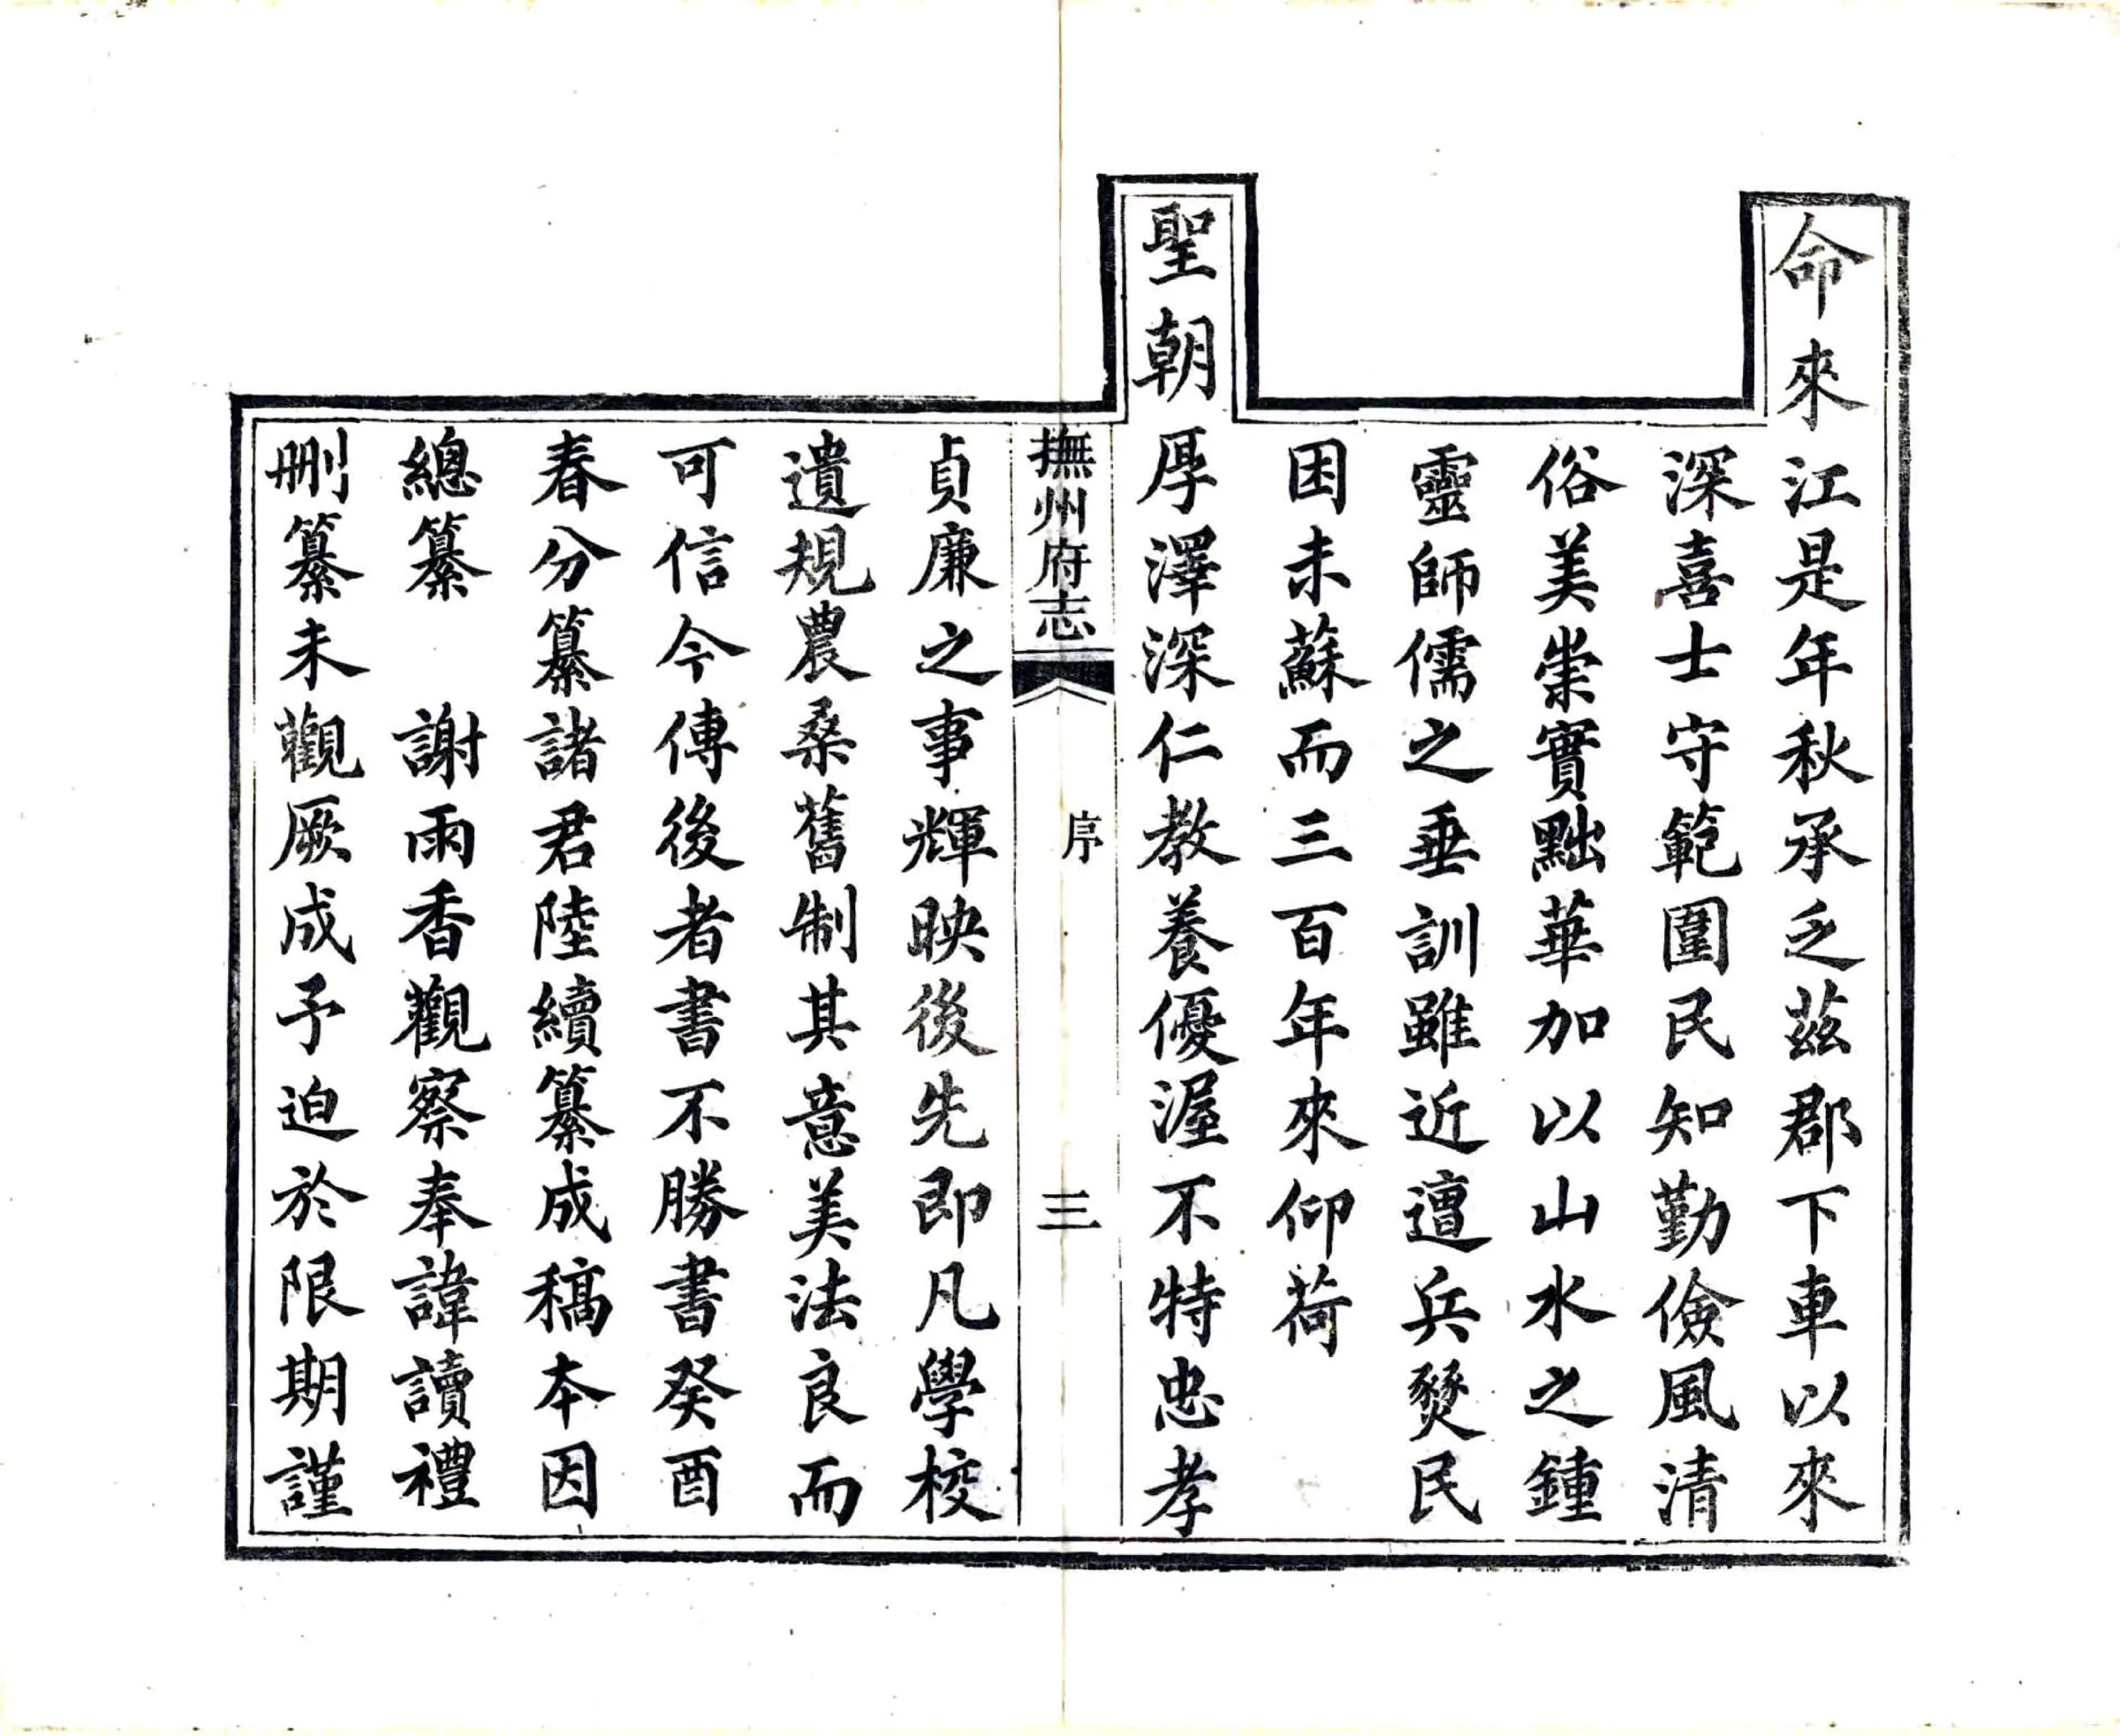 命來江是年秋承乏茲郡下車以來
深喜士守範圍民知勤儉風清
俗美崇實黜華加以山水之鍾
靈師儒之垂訓雖近遭兵燹民
困未蘇而三百年來仰荷
聖朝厚澤深仁教養優渥不特忠孝
撫州府志 序 三
貞廉之事輝映後先即凡學校
遺規農桑舊制其意美法良而
可信今傳後者書不勝書癸酉
春分纂諸君陸續纂成稿本因
總纂 謝雨香觀察奉諱讀禮
刪纂未觀厥成予迫於限期謹